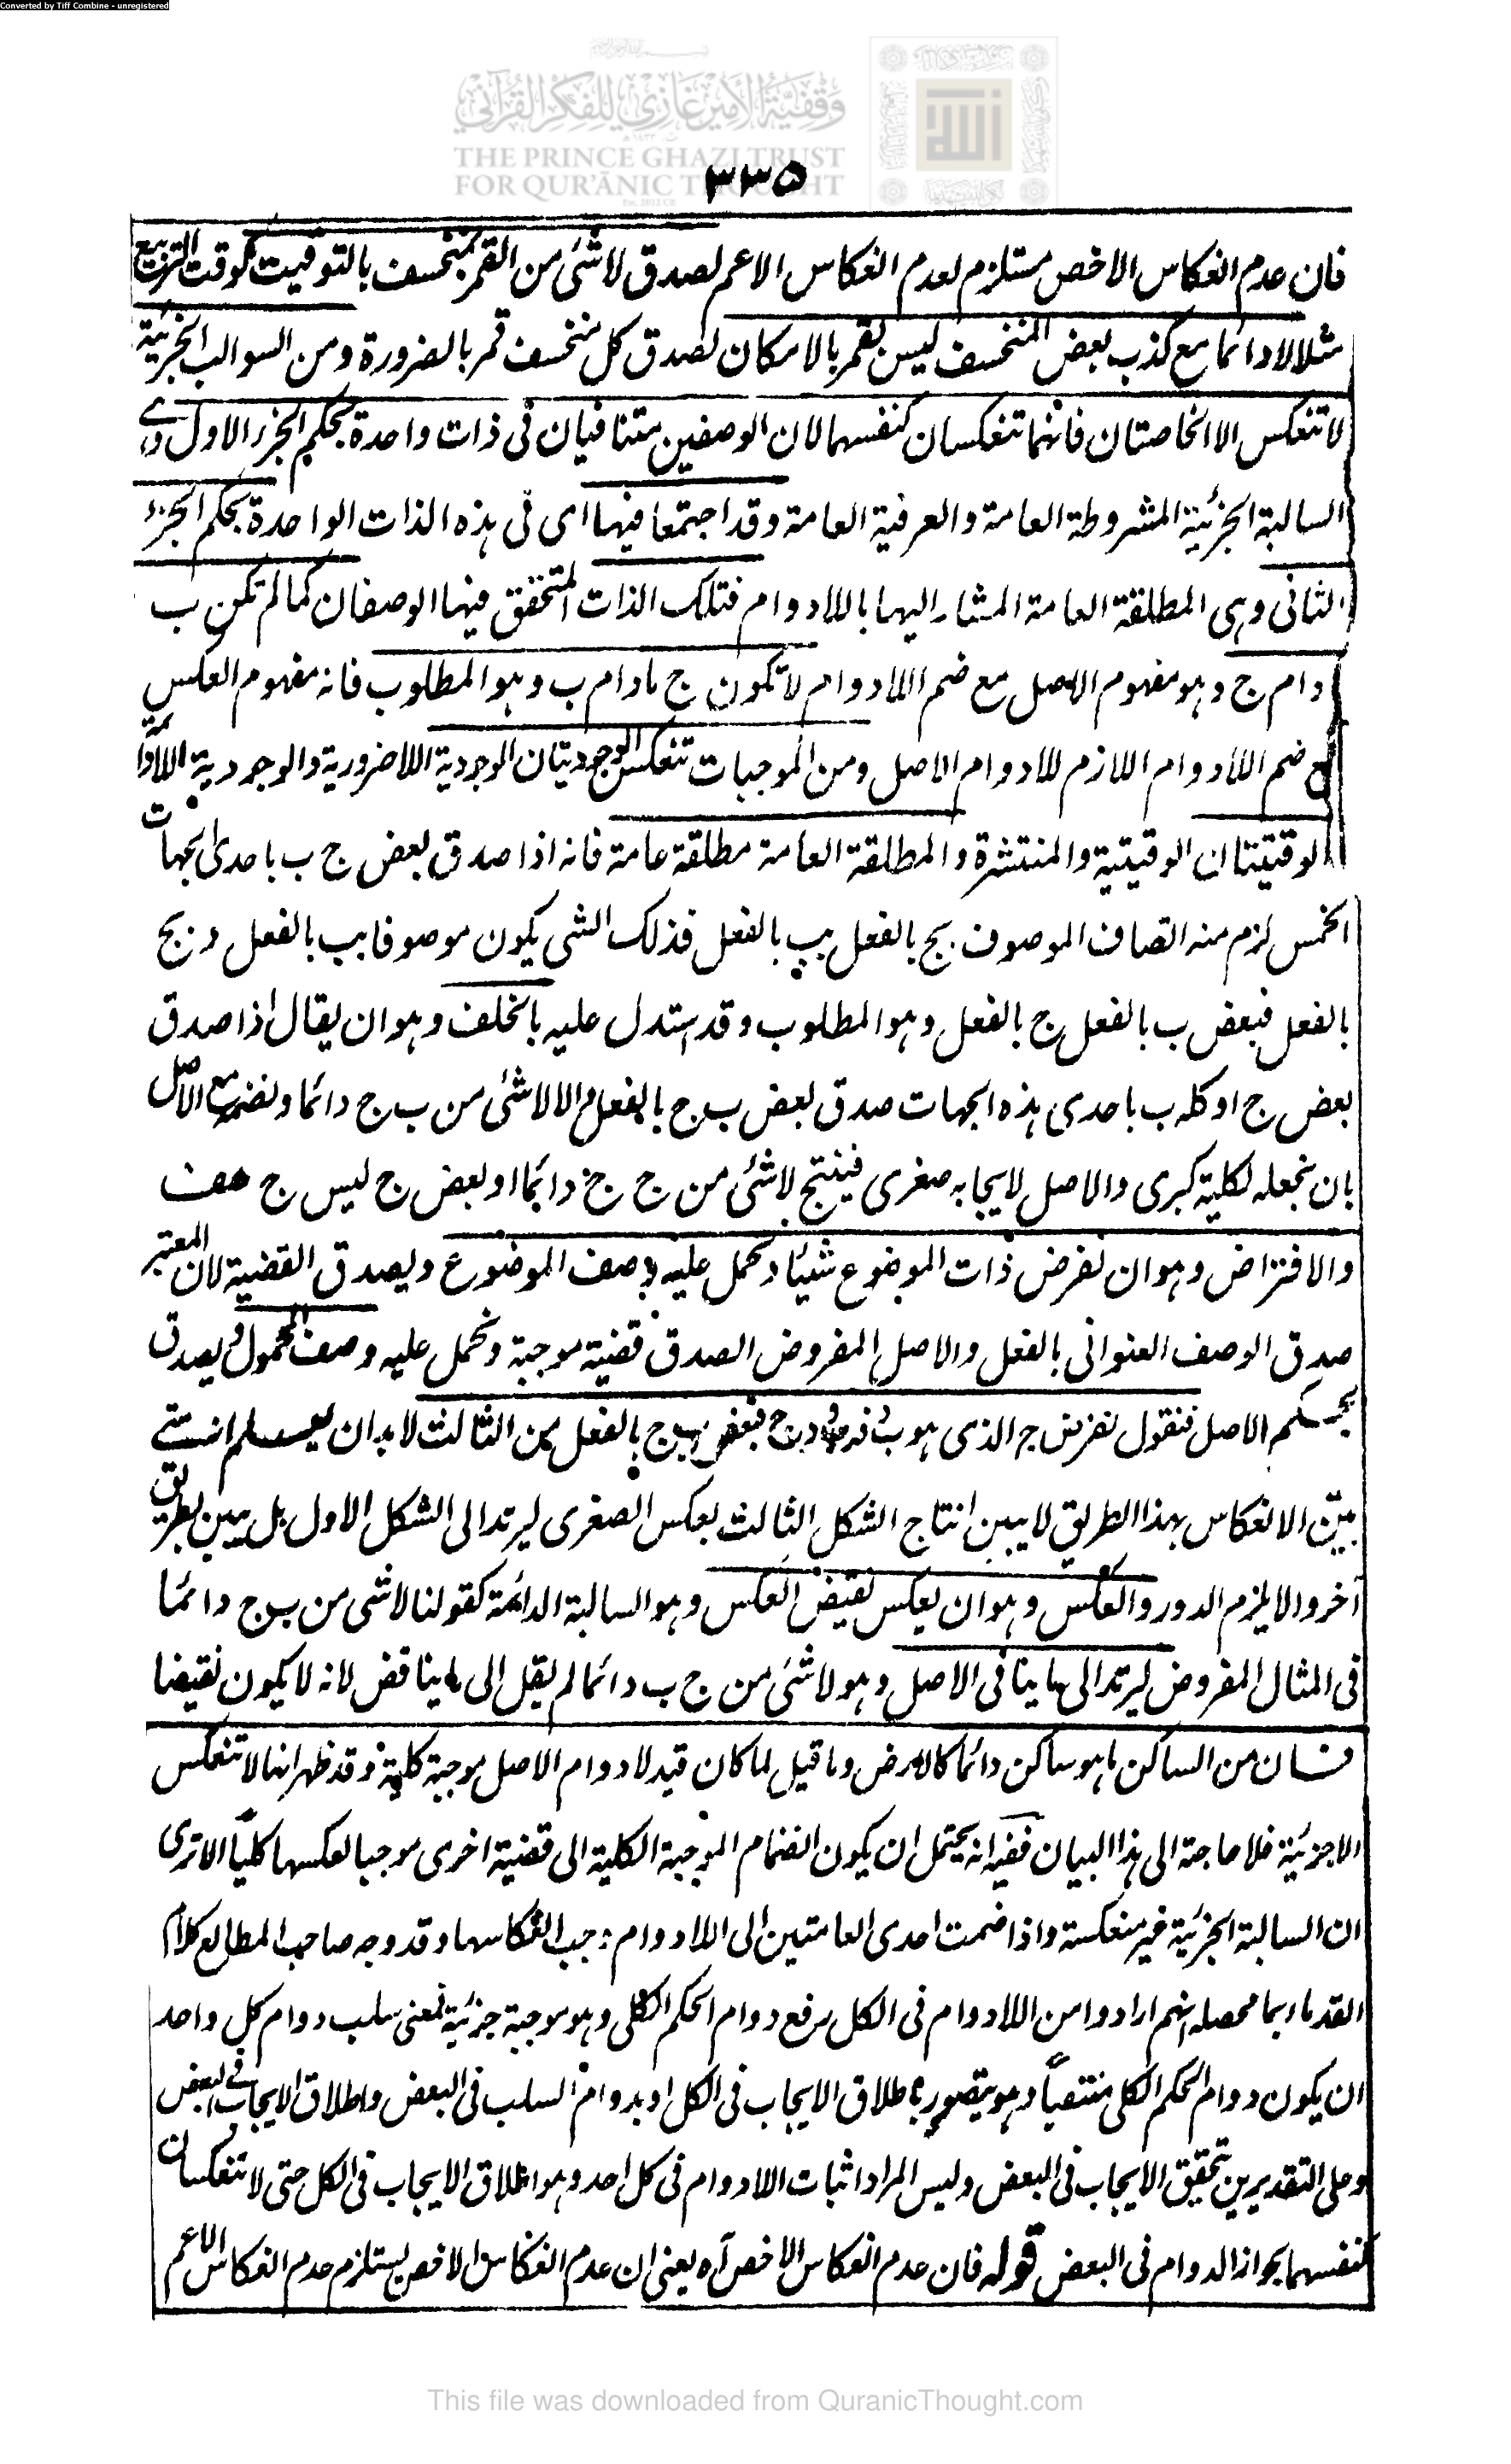 Converted by Tiff Combine - unregistered
وَقْفِيَّةُ الأَمِيرِ غَازِي لِلْفِكْرِ القُرْآنِي
THE PRINCE GHAZI TRUST
FOR QUR'ĀNIC THOUGHT
۳۳۵
فان عدم انعكاس الاخص مستلزم لعدم انعكاس الاعم لصدق لا شئ من القمر بمنخسف بالتوقيت كوقت التربيع
مثلا لا دائما مع كذب بعض المنخسف ليس بقمر بالامكان لصدق كل منخسف قمر بالضرورة ومن السوالب الجزئية
لا تنعكس الا الخاصتان فانهما تنعكسان كنفسهما لان الوصفين متنافيان فى ذات واحدة بحكم الجزء الاول اى
السالبة الجزئية المشروطة العامة والعرفية العامة وقد اجتمعا فيها اى فى هذه الذات الواحدة بحكم الجزء
الثانى وهى المطلقة العامة المشار اليها باللادوام فتلك الذات المتحقق فيها الوصفان كما لم تكن ب
دام ج وهو مفهوم الاصل مع ضم اللادوام لا تكون ج مادام ب وهو المطلوب فانه مفهوم العكس
مع ضم اللادوام اللازم للادوام الاصل ومن الموجبات تنعكس الوجوديتان الوجودية اللاضرورية والوجودية اللادائمة
الوقتيتان الوقتية والمنتشرة والمطلقة العامة مطلقة عامة فانه اذا صدق بعض ج ب باحدى الجهات
الخمس لزم منه اتصاف الموصوف بج بالفعل بب بالفعل فذلك الشى يكون موصوفا بب بالفعل وبج
بالفعل فبعض ب بالفعل ج بالفعل وهو المطلوب وقد استدل عليه بالخلف وهو ان يقال اذا صدق
بعض ج او كله ب باحدى هذه الجهات صدق بعض ب ج بالفعل والا لا شئ من ب ج دائما ونضمه مع الاصل
بان نجعله لكلية كبرى والاصل لايجابه صغرى فينتج لا شئ من ج ج دائما او بعض ج ليس ج هف
والافتراض وهو ان نفرض ذات الموضوع شيئا ونحمل عليه وصف الموضوع ويصدق القضية لان المعتبر
صدق الوصف العنوانى بالفعل والاصل المفروض الصدق قضية موجبة ونحمل عليه وصف المحمول ويصدق
بحكم الاصل فنقول نفرض ج الذى هو ب د فد ب و د ج فبعض ب ج بالفعل من الثالث لا بد ان يعلم انه متى
بين الانعكاس بهذا الطريق لا يبين انتاج الشكل الثالث بعكس الصغرى ليرتد الى الشكل الاول بل يبين بطريق
آخر والا يلزم الدور والعكس وهو ان يعكس نقيض العكس وهو السالبة الدائمة كقولنا لا شى من ب ج دائما
فى المثال المفروض ليرتد الى ما ينافى الاصل وهو لا شئ من ج ب دائما لم يقل الى ما يناقض لانه لا يكون نقيضا
فان من الساكن ما هو ساكن دائما كالارض وما قيل لما كان قيد لادوام الاصل موجبة كلية وقد ظهر انها لا تنعكس
الا جزئية فلا حاجة الى هذا البيان ففيه انه يحتمل ان يكون انضمام الموجبة الكلية الى قضية اخرى موجبا لعكسها كليا الا ترى
ان السالبة الجزئية غير منعكسة واذا ضمت احدى العامتين الى اللادوام وجب انعكاسها وقد وجه صاحب المطالع كلام
القدماء بما محصله انهم ارادوا من اللادوام فى الكل رفع دوام الحكم الكلى وهو موجبة جزئية بمعنى سلب دوام كل واحد
ان يكون دوام الحكم الكلى منتفيا وهو يتصور باطلاق الايجاب فى الكل او بدوام السلب فى البعض واطلاق الايجاب فى البعض
وعلى التقديرين تحقيق الايجاب فى البعض وليس المراد اثبات اللادوام فى كل احد وهو اطلاق الايجاب فى الكل حتى لا تنعكسان
كنفسهما بجواز الدوام فى البعض قوله فان عدم انعكاس الاخص آه يعنى ان عدم انعكاس الاخص يستلزم عدم انعكاس الاعم
This file was downloaded from QuranicThought.com